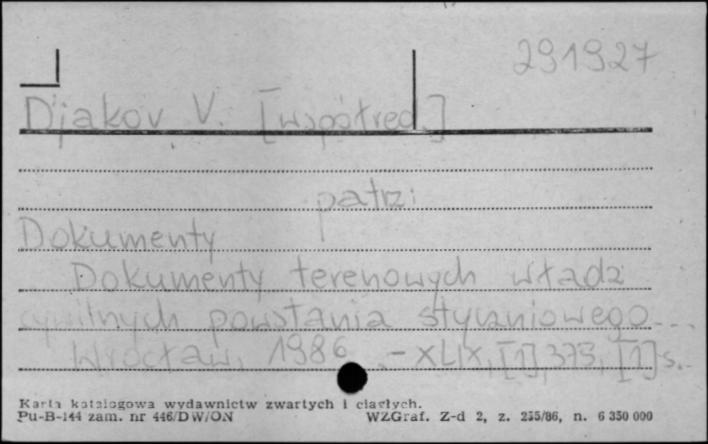 291927
Djakov V. [współred.]
patrz:
Dokumenty
Dokumenty terenowych władz
cywilnych powstania styczniowego...
Wrocław, 1986. - XLIX, [1], 373, [1] s.
Karta katalogowa wydawnictw zwartych i ciągłych.
Pu-B-144 zam. nr 446/DW/ON
WZGraf. Z-d 2, z. 255/86, n. 6 350 000